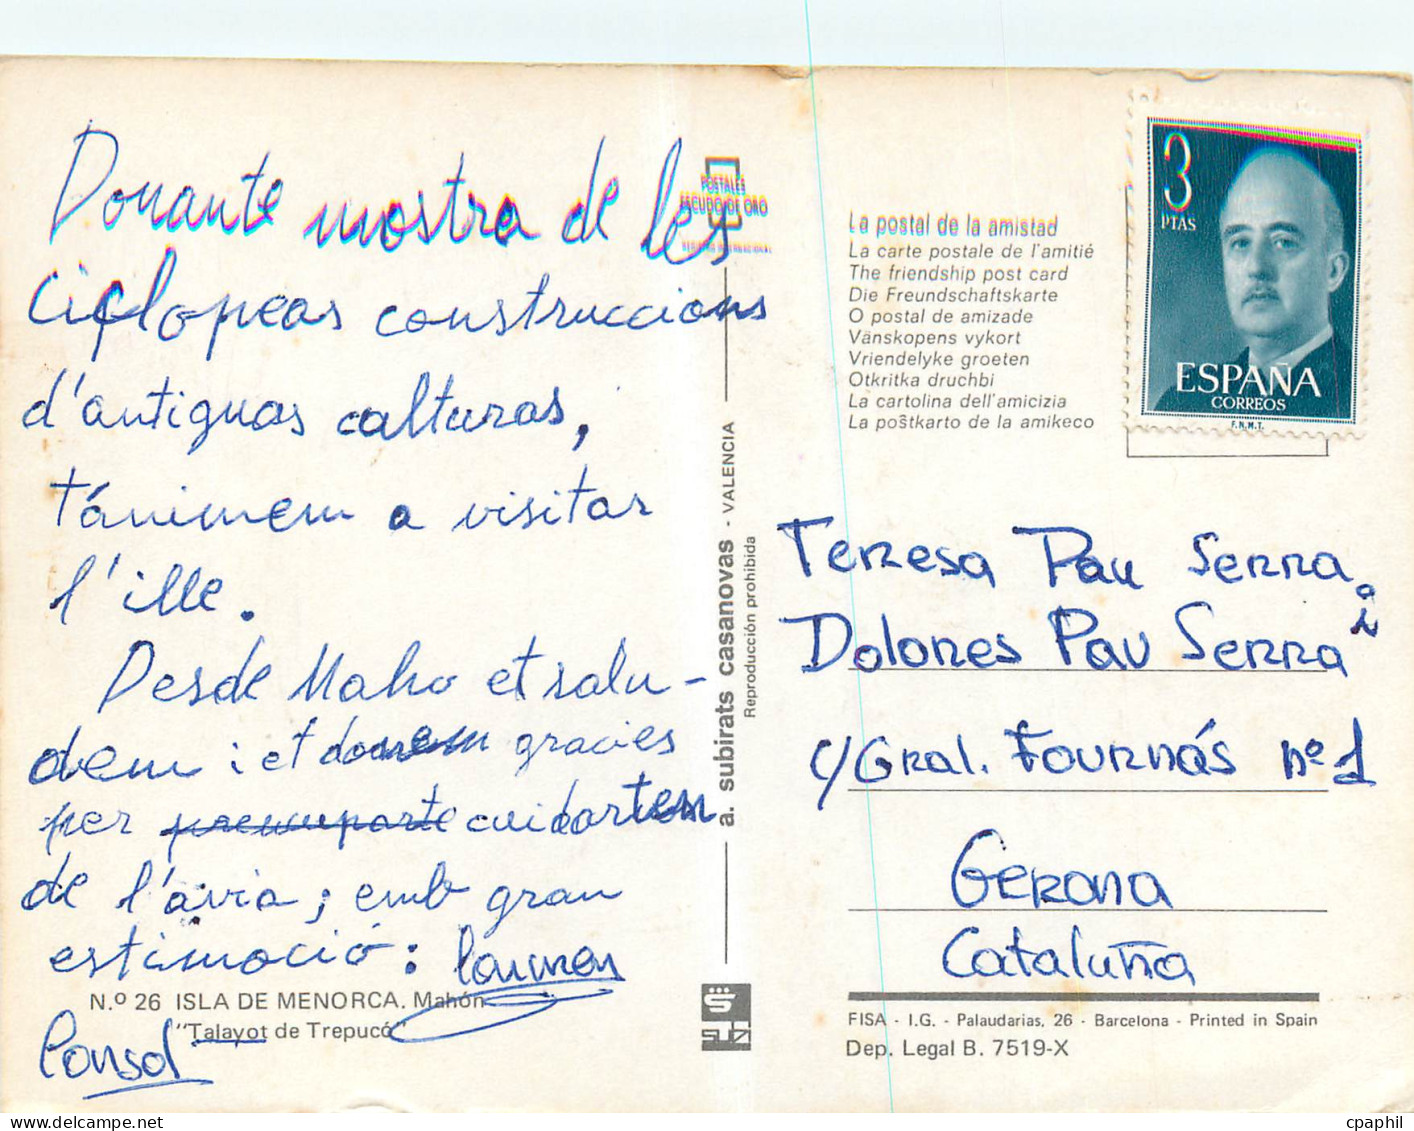 Donante mostra de les
ciclopeas construccions
d'antiguas culturas,
t'animem a visitar
l'ille.
Desde Maho et salu-
dem i et donem gracies
per cuidartem
de l'àvia; emb gran
estimació: Carmen
Consol
N.º 26 ISLA DE MENORCA. Mahón
"Talayot de Trepucó"
POSTALES
ESCUDO DE ORO
REGISTRO INTERNACIONAL
a. subirats casanovas - VALENCIA
Reproducción prohibida
La postal de la amistad
La carte postale de l'amitié
The friendship post card
Die Freundschaftskarte
O postal de amizade
Vänskopens vykort
Vriendelyke groeten
Otkritka druchbi
La cartolina dell'amicizia
La poŝtkarto de la amikeco
3
PTAS
ESPAÑA
CORREOS
F.N.M.T.
Teresa Pau Serra i
Dolores Pau Serra
c/Gral. Fournás nº 1
Gerona
Cataluña
FISA - I.G. - Palaudarias, 26 - Barcelona - Printed in Spain
Dep. Legal B. 7519-X
cpaphil